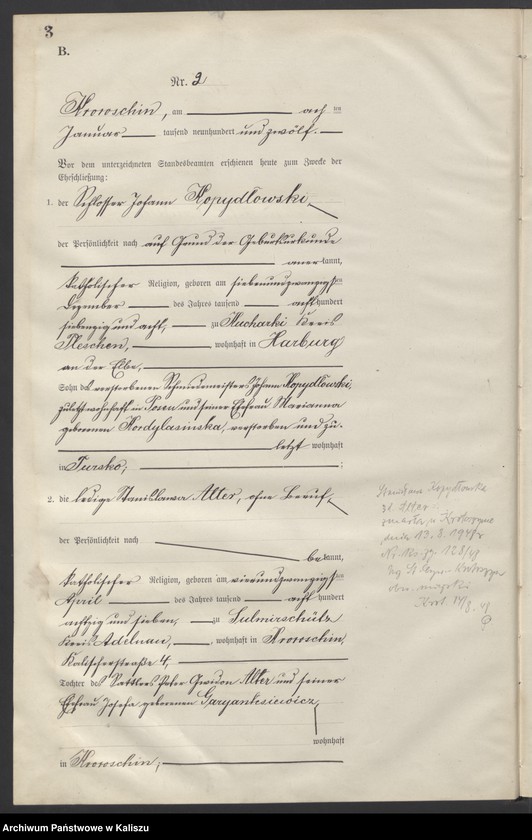 3
B.
Nr. 2
Krotoschin, am acht en
Januar tausend neunhundert und zwölf.
Vor dem unterzeichneten Standesbeamten erschienen heute zum Zwecke der
Eheschließung:
1. der Schlosser Johann Kopydłowski,
der Persönlichkeit nach auf Grund der Geburtsurkunde
anerkannt,
katholischer Religion, geboren am siebenundzwanzigsten
Dezember des Jahres tausend achthundert
siebenzig und acht, zu Kucharki Kreis
Pleschen, wohnhaft in Harburg
an der Elbe,
Sohn des verstorbenen Schmiedemeisters Johann Kopydłowski,
zuletzt wohnhaft in Posen und seiner Ehefrau Marianna
geborenen Kordylasinska, verstorben und zu-
letzt wohnhaft
in Tursko;
2. die ledige Stanislawa Alter, ohne Beruf,
der Persönlichkeit nach
bekannt,
katholischer Religion, geboren am vierundzwanzigsten
April des Jahres tausend acht hundert
achtzig und sieben, zu Sulmirschütz
Kreis Adelnau, wohnhaft in Krotoschin,
Kalischerstraße 4,
Tochter des Sattlers Peter Alter und seiner
Ehefrau Josefa geborenen
wohnhaft
in Krotoschin;
Stanisława Kopydłowska
zd. Alter
zmarła w Krotoszynie
dnia 13.3.
Nr 128/41
Archiwum Państwowe w Kaliszu